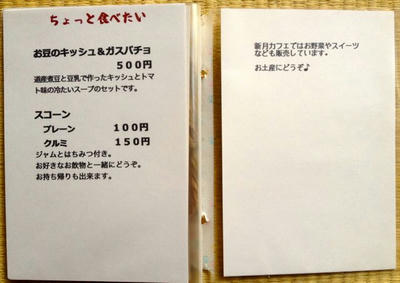 ちょっと食べたい
お豆のキッシュ＆ガスパチョ
５００円
道産煮豆と豆乳で作ったキッシュとトマ
ト味の冷たいスープのセットです。
スコーン
プレーン　１００円
クルミ　１５０円
ジャムとはちみつ付き。
お好きなお飲物と一緒にどうぞ。
お持ち帰りも出来ます。
新月カフェではお野菜やスイーツ
なども販売しています。
お土産にどうぞ♪